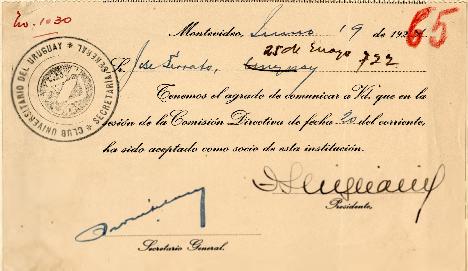 No. 1030
65
Montevideo, Junio 19 de 192
25 de Mayo 722
Sr. José Serrato, Uruguay
CLUB UNIVERSITARIO DEL URUGUAY
SECRETARÍA GENERAL
Tenemos el agrado de comunicar a Vd. que en la
sesión de la Comisión Directiva de fecha 20 del corriente,
ha sido aceptado como socio de esta institución.
Presidente.
Secretario General.